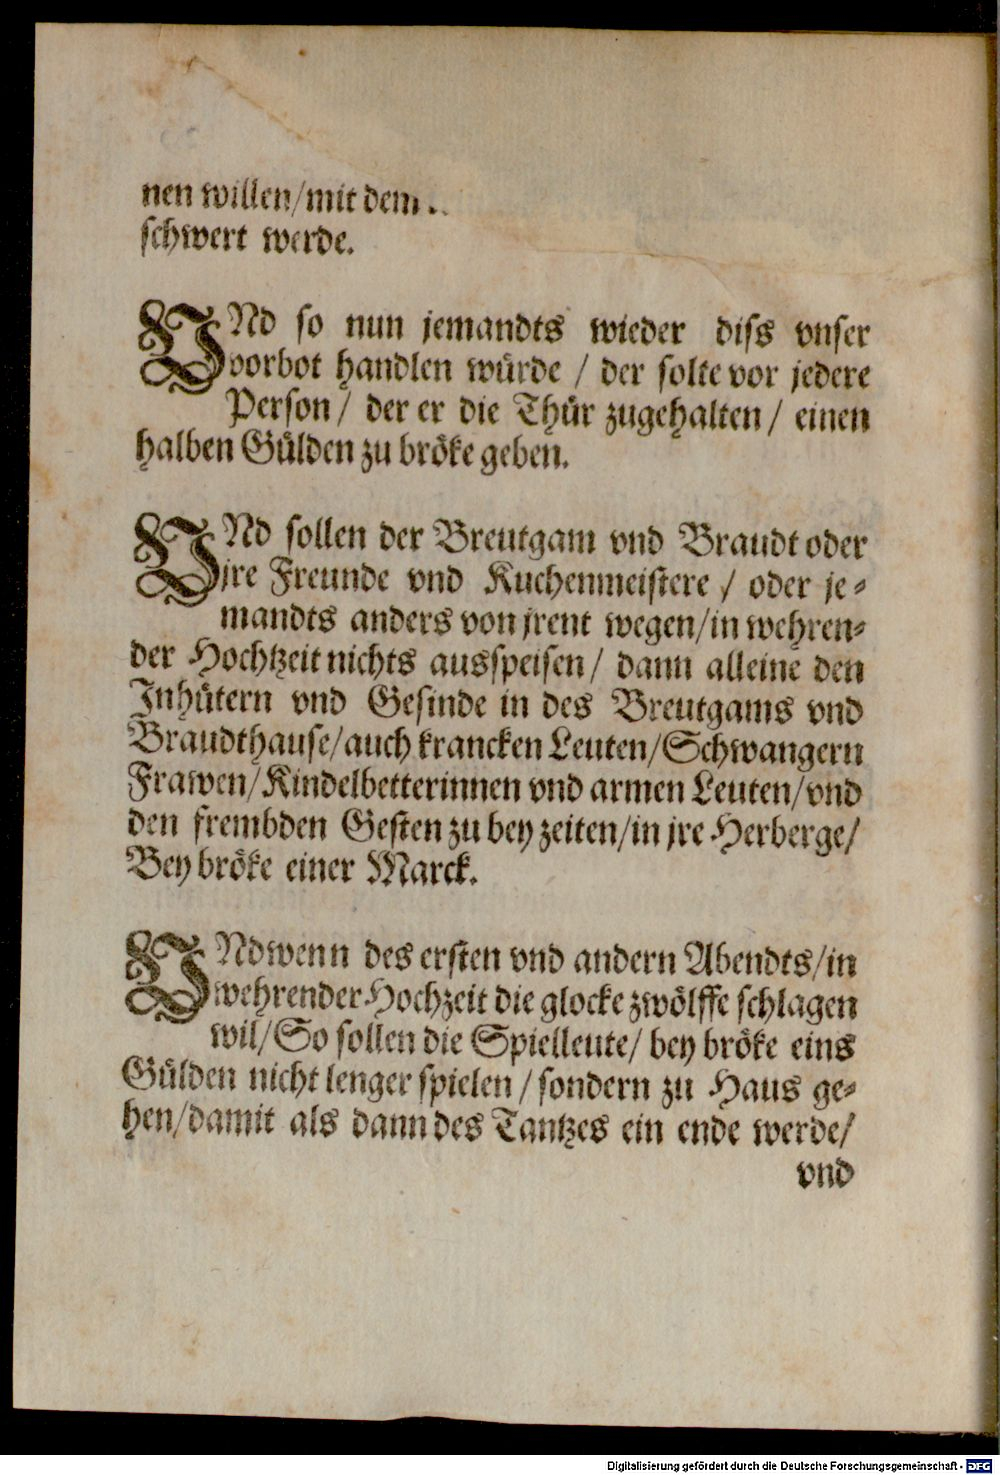 nen willen/mit dem
schwert werde.
VNd so nun jemandts wieder diss vnser
vorbot handlen würde / der solte vor jedere
Person / der er die Thür zugehalten / einen
halben Gülden zu bröke geben.
VNd sollen der Breutgam vnd Braudt oder
jre Freunde vnd Kuchenmeistere / oder je-
mandts anders von jrent wegen/in wehren-
der Hochtzeit nichts ausspeisen/ dann alleine den
Inhütern vnd Gesinde in des Breutgams vnd
Braudthause/auch krancken Leuten/Schwangern
Frawen/Kindelbetterinnen vnd armen Leuten/vnd
den frembden Gesten zu bey zeiten/in jre Herberge/
Bey bröke einer Marck.
VNdwenn des ersten vnd andern Abendts/in
wehrender Hochzeit die glocke zwölffe schlagen
wil/So sollen die Spielleute/ bey bröke eins
Gülden nicht lenger spielen / sondern zu Haus ge-
hen/damit als dann des Tantzes ein ende werde/
vnd
Digitalisierung gefördert durch die Deutsche Forschungsgemeinschaft - DFG